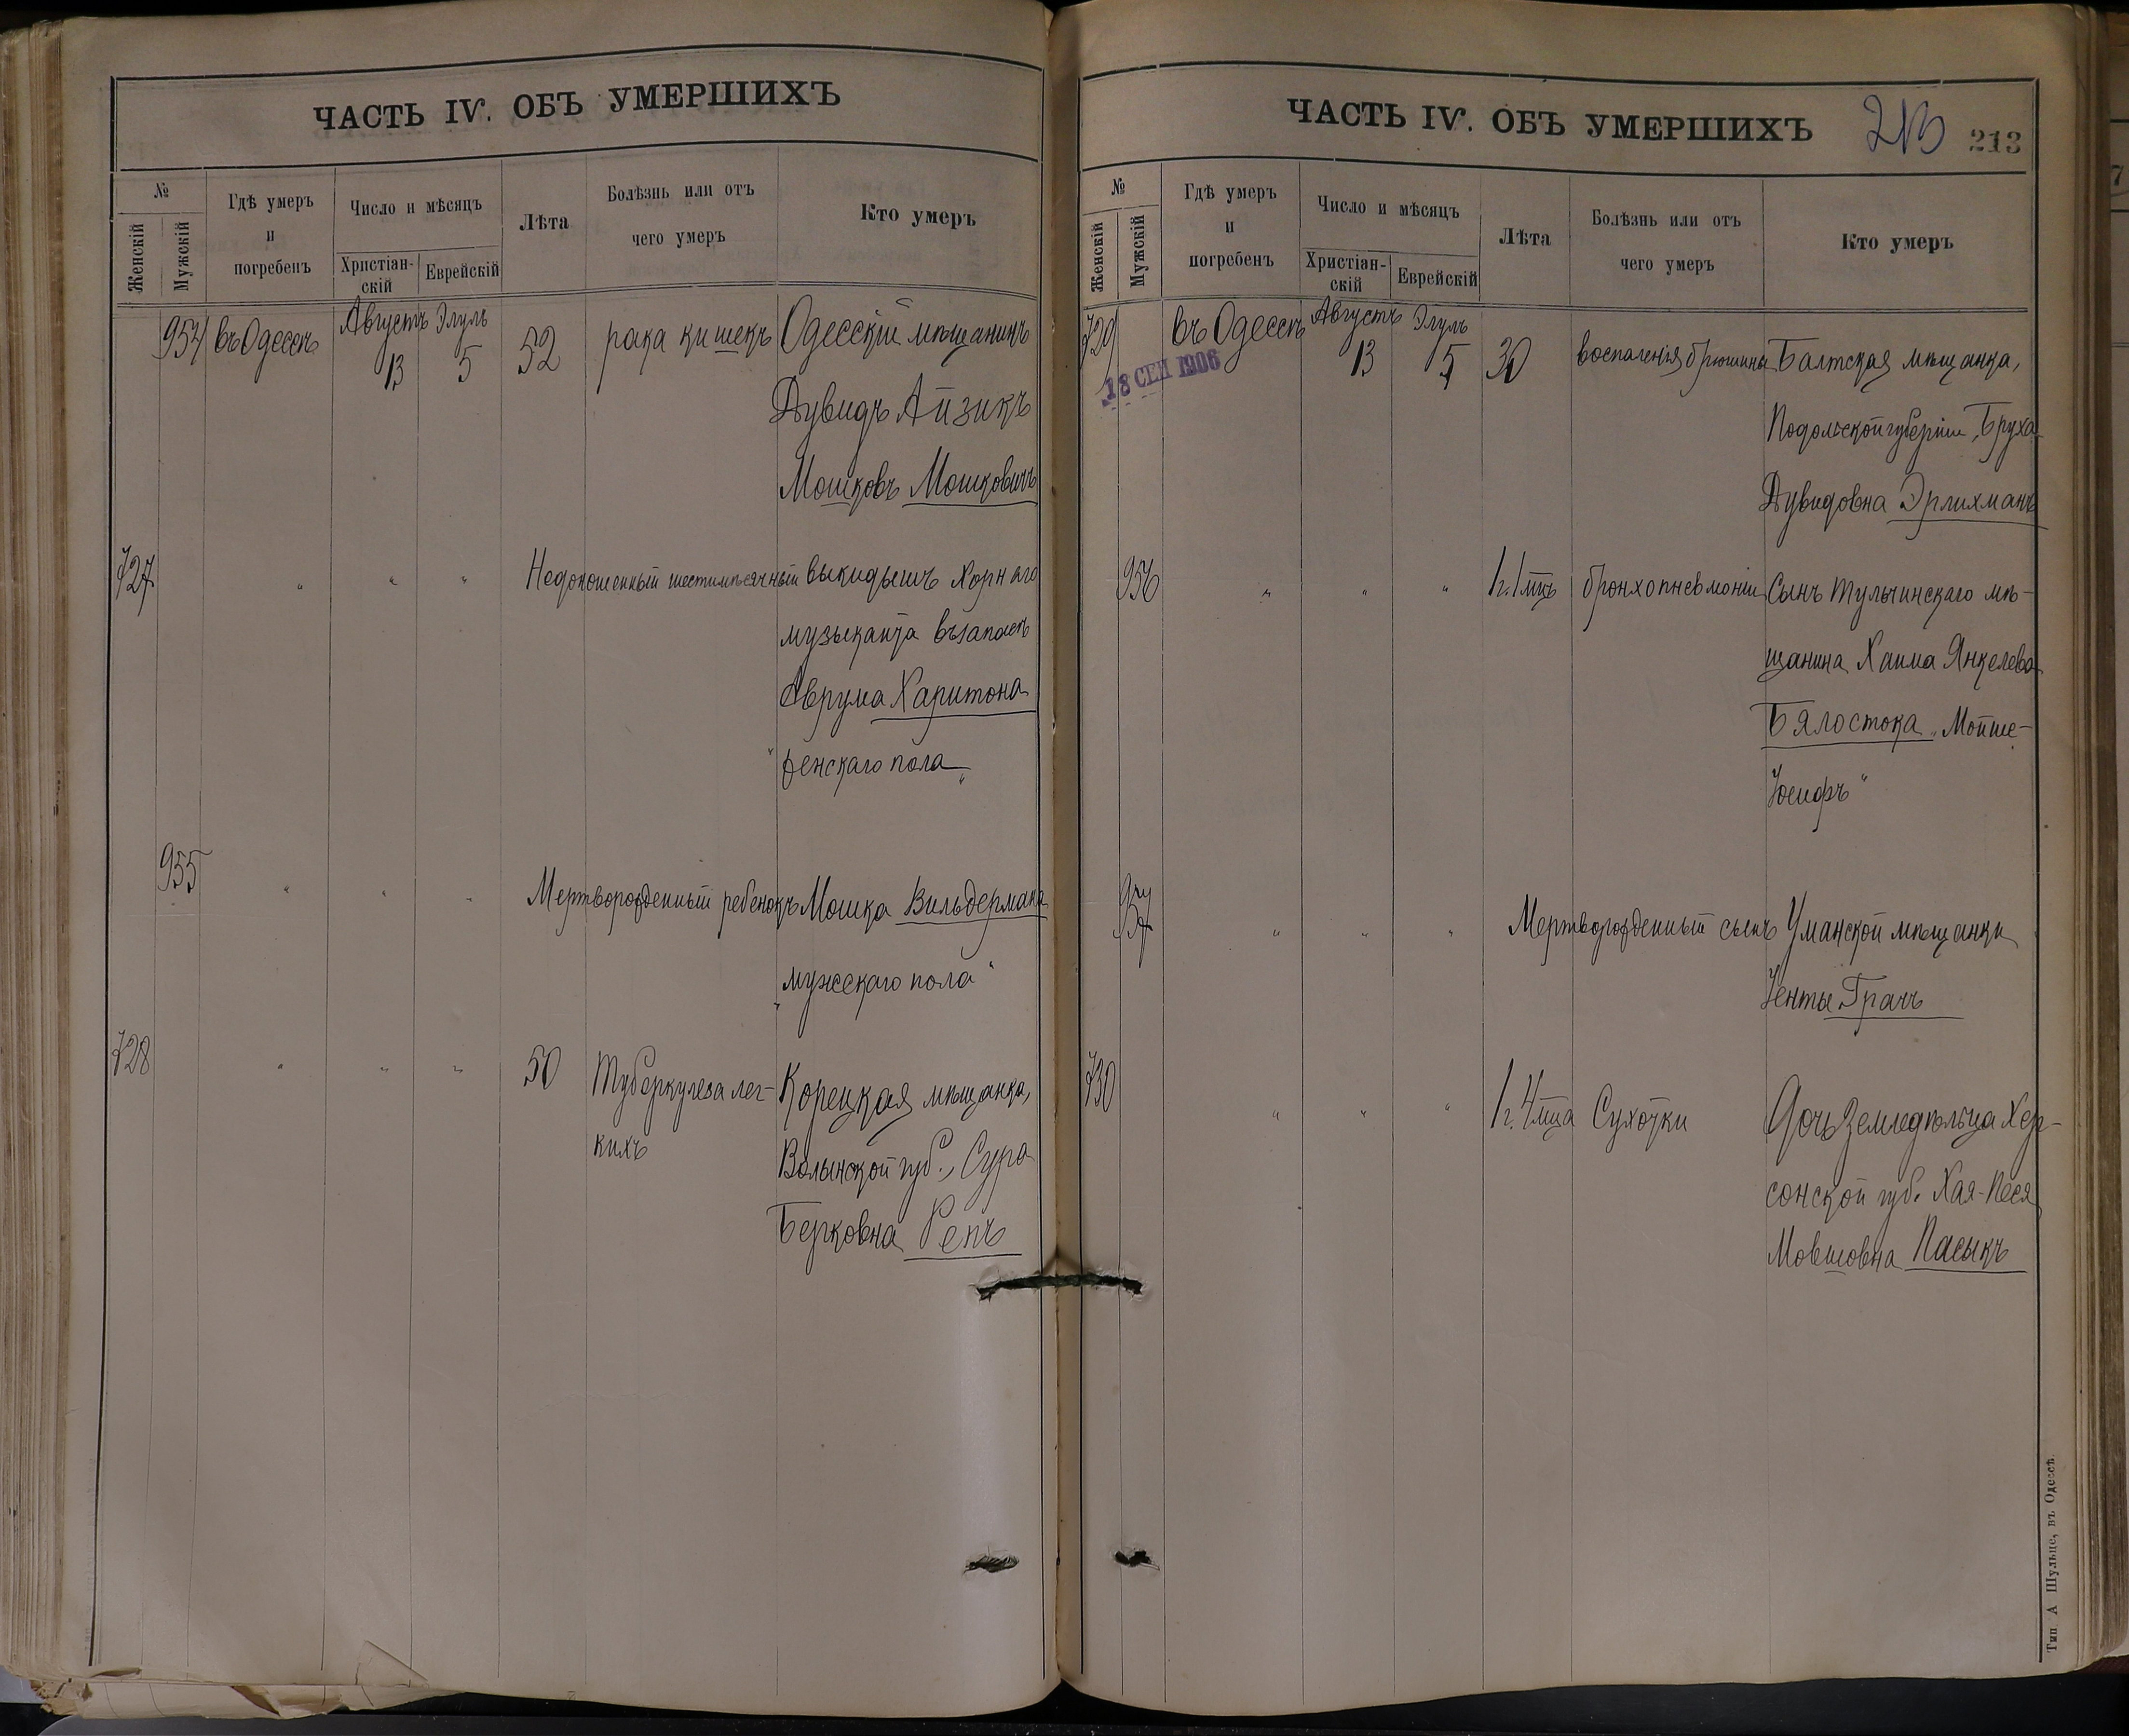 ЧАСТЬ IV. ОБЪ УМЕРШИХЪ
№
Женскій
Мужскій
Гдѣ умеръ
и
погребенъ
Число и мѣсяцъ
Христіан-
скій
Еврейскій
Лѣта
Болѣзнь или отъ
чего умеръ
Кто умеръ
954 въ Одессѣ Августъ 13 Элуль 5 52 рака кишекъ Одесскій мѣщанинъ
Дувидъ Айзикъ
Мошковъ Мошковичъ
727 " " " Недоношенный шестимѣсячный выкидышъ Хорнаго
музыканта въ запасѣ
Аврума Харитона
"женскаго пола"
955 " " " Мертворожденный ребенокъ Мошка Вильдермана
"мужескаго пола"
728 " " " 50 Туберкулеза лег- Корецкая мѣщанка,
кихъ Волынской губ., Сура
Берковна Репъ
ЧАСТЬ IV. ОБЪ УМЕРШИХЪ 213 213
№
Женскій
Мужскій
Гдѣ умеръ
и
погребенъ
Число и мѣсяцъ
Христіан-
скій
Еврейскій
Лѣта
Болѣзнь или отъ
чего умеръ
Кто умеръ
729 въ Одессѣ Августъ 13 Элулъ 5 30 воспаленія брюшины Балтская мѣщанка,
18 СЕН 1906
Подольской губерніи, Бруха
Дувидовна Эрлихманъ
956 " " " 1 г. 1 мцъ бронхопневмоніи Сынъ Тульчинскаго мѣ-
щанина Хаима Янкелева
Бялостока "Мойше-
Іосифъ"
957 " " " Мертворожденный сынъ Уманской мѣщанки
Іенты Грачъ
730 " " " 1 г. 4 мца Сухотки Дочь земледѣльца Хер-
сонской губ. Хая-Песя
Мовшовна Пасыкъ
Тип А Шульце, въ Одессѣ.
7